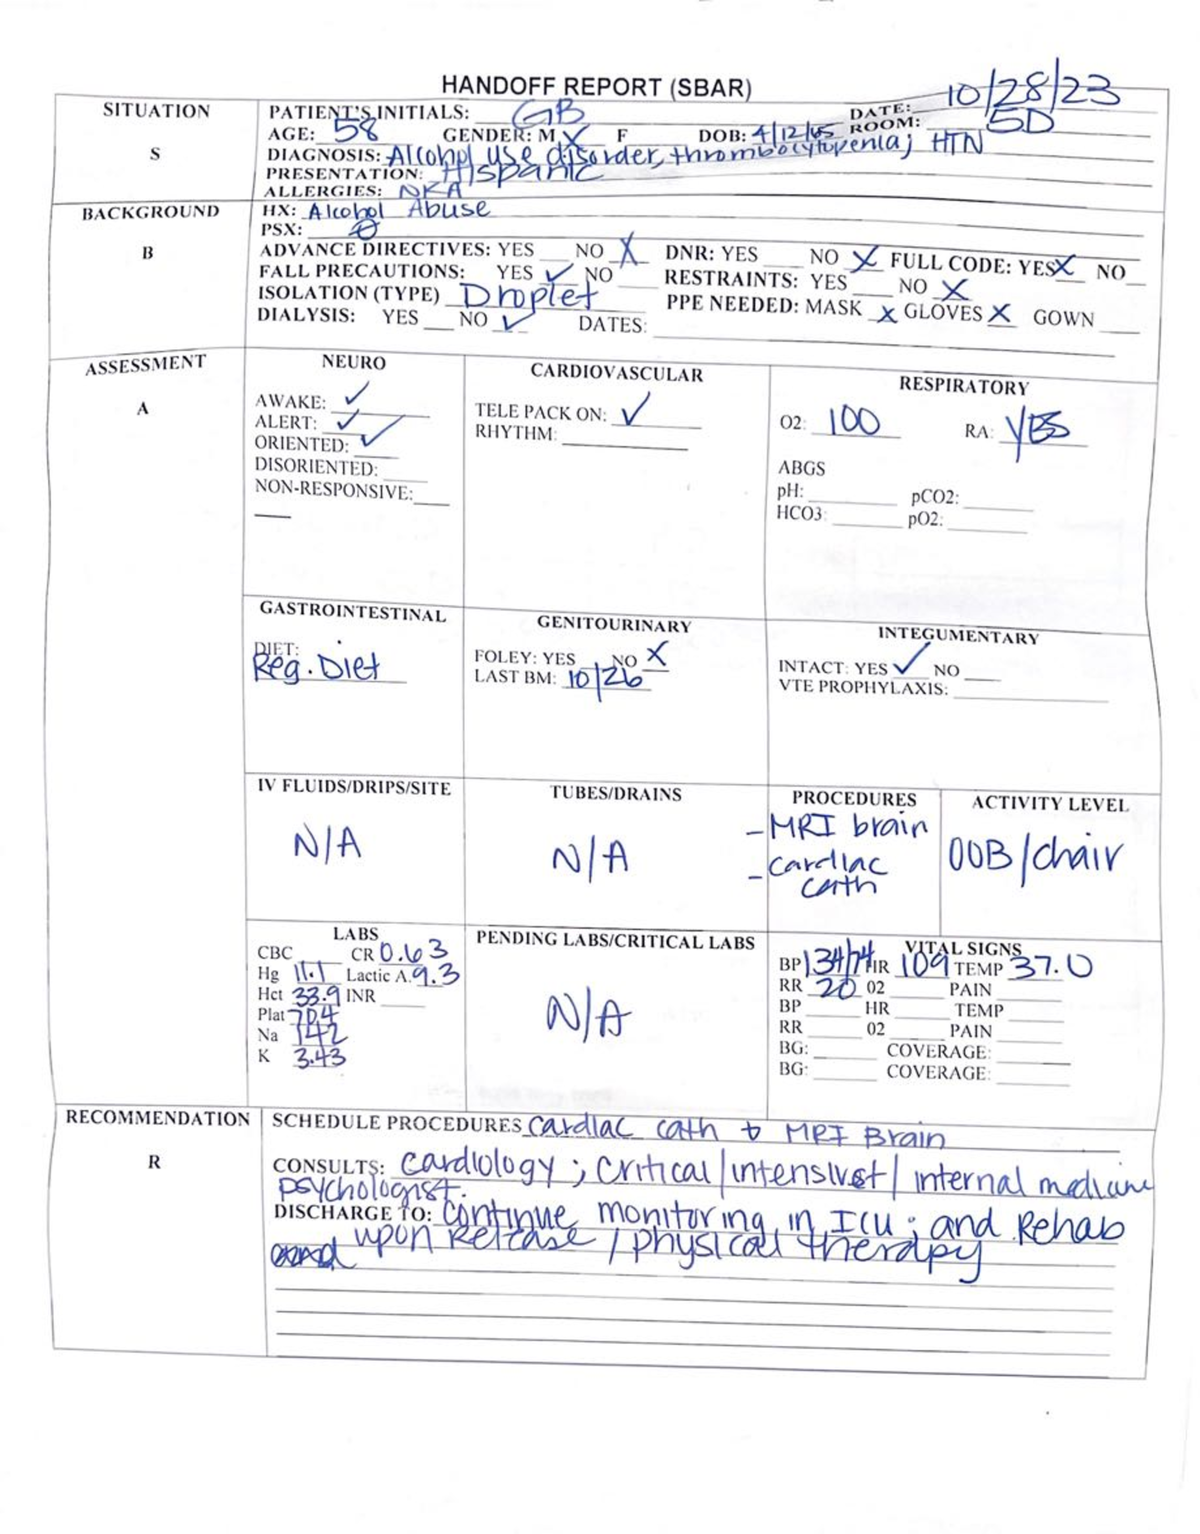 HANDOFF REPORT (SBAR)
SITUATION
S
PATIENT'S INITIALS: GB DATE: 10/28/23
AGE: 58 GENDER: M X F DOB: 4/12/65 ROOM: 5D
DIAGNOSIS: Alcohol use disorder, thrombocytopenia; HTN
PRESENTATION: Hispanic
ALLERGIES: NKA
BACKGROUND
B
HX: Alcohol Abuse
PSX: Ø
ADVANCE DIRECTIVES: YES ___ NO X DNR: YES ___ NO X FULL CODE: YES X NO __
FALL PRECAUTIONS: YES ✓ NO ___ RESTRAINTS: YES ___ NO X
ISOLATION (TYPE) Droplet PPE NEEDED: MASK X GLOVES X GOWN ___
DIALYSIS: YES ___ NO ✓ DATES: ___
ASSESSMENT
A
NEURO
AWAKE: ✓
ALERT: ✓
ORIENTED: ✓
DISORIENTED: ___
NON-RESPONSIVE: ___
CARDIOVASCULAR
TELE PACK ON: ✓
RHYTHM: ___
RESPIRATORY
O2: 100 RA: YES
ABGS
pH: ___ pCO2: ___
HCO3: ___ pO2: ___
GASTROINTESTINAL
DIET:
Reg. Diet
GENITOURINARY
FOLEY: YES ___ NO X
LAST BM: 10/26
INTEGUMENTARY
INTACT: YES ✓ NO ___
VTE PROPHYLAXIS: ___
IV FLUIDS/DRIPS/SITE
N/A
TUBES/DRAINS
N/A
PROCEDURES
- MRI brain
- cardiac
cath
ACTIVITY LEVEL
OOB/chair
LABS
CBC ___ CR 0.63
Hg 11.1 Lactic A. 9.3
Hct 33.9 INR ___
Plat 704
Na 142
K 3.43
PENDING LABS/CRITICAL LABS
N/A
VITAL SIGNS
BP 134/74 HR 109 TEMP 37.0
RR 20 02 ___ PAIN ___
BP ___ HR ___ TEMP ___
RR ___ 02 ___ PAIN ___
BG: ___ COVERAGE: ___
BG: ___ COVERAGE: ___
RECOMMENDATION
R
SCHEDULE PROCEDURES cardiac cath & MRI Brain
CONSULTS: cardiology; critical/intensivst/internal medicine
psychologist.
DISCHARGE TO: continue monitoring in ICU; and Rehab
upon Release/physical therapy